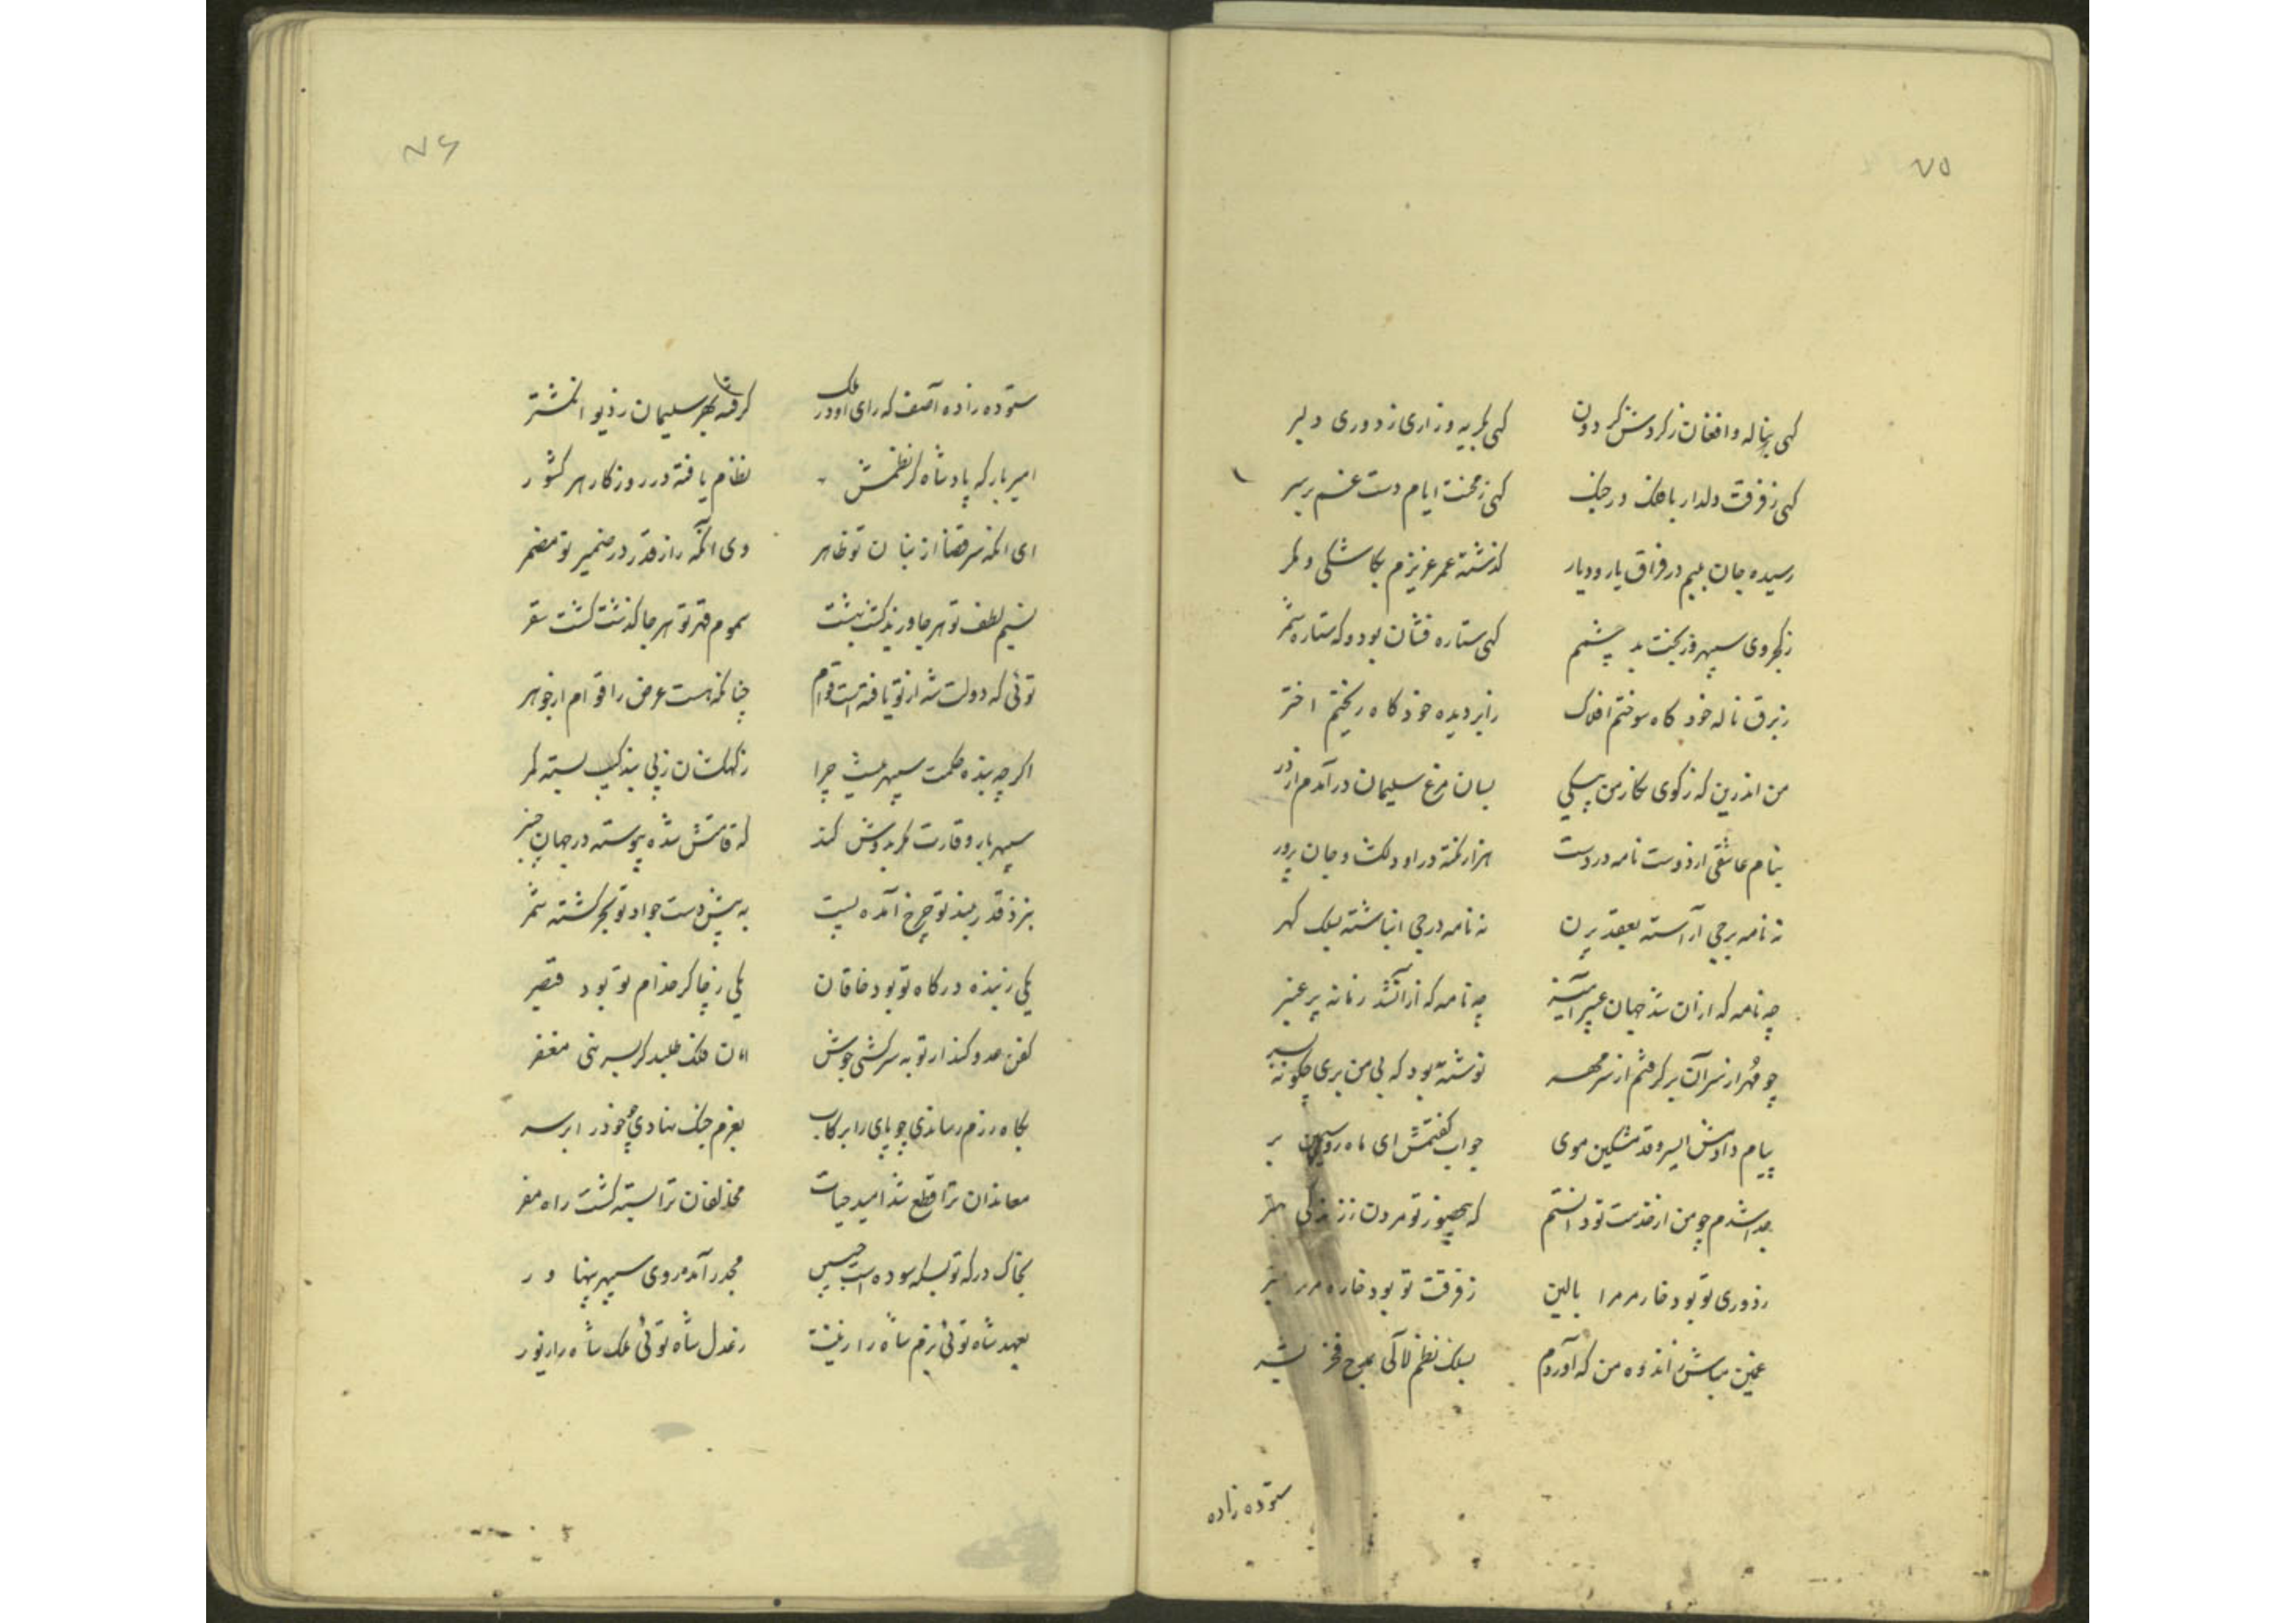 ۷۵
کهی بناله و افغان ز کردش کردون کهی بکریه و زاری ز دوری دلبر
کهی ز فرقت دلدار با فلک در جنک کهی ز محنت ایام دست غم بر سر
رسیده جان بلبم در فراق یار و دیار کذشته عمر عزیزم بکاشکی و مکر
ز کجروی سپهر و ز بخت بد چشمم کهی ستاره فشان بود و که ستاره شمر
ز برق ناله خود کاه سوختم افلاک ز ابر دیده خود کاه ریختم اختر
من اندرین که ز کوی نکار من پیکی بسان مرغ سلیمان در آمدم از در
بنام عاشقی از دوست نامه در دست هزار نکته در او دلکش و جان پرور
نه نامه برجی آراسته بعقد پرن نه نامه درجی انباشته بسلک کهر
چه نامه که از ان شد جهان عبیر آمیز چه نامه که از آن شد زمانه پر عنبر
چو مهر از سر آن بر کرفتم از سر مهر نوشته بود که بی من بری چکونه بسر
پیام دادمش ای سرو قد مشکین موی جواب کفتمش ای ماه روی سیمین بر
جدا شدم چو من از خدمت تو دانستم که هجر تو مردن ز زندکی
ز دوری تو بود خار مر مرا بالین ز فرقت تو بود خاره مر مرا بستر
غمین مباش ز اندوه من که آوردم بسلک نظم لآلی بمدح فخر بشر
ستوده زاده
۷۶
ستوده زاده آصف که رای او در ملک کرفته بهر سلیمان ز دیو انکشتر
امیر بار که پادشاه کز نظمش نظام یافته در روزکار هر کشور
ای انکه سر قضا از بنان تو ظاهر وی انکه راز قدر در ضمیر تو مضمر
نسیم لطف تو هر جا وزید کشت بهشت سموم قهر تو هر جا کذشت کشت سقر
توئی که دولت شه از تو یافته است قوام چنانکه هست عرض را قوام از جوهر
اکر چه بنده حکمت سپهر نیست چرا ز کهکشان ز پی بندکیت بسته کمر
سپهر بار وقارت مکر بدوش کشد که قامتش شده پیوسته در جهان چنبر
بنزد قدر بلند تو چرخ آمده پست به پیش دست جواد تو بحر کشته شمر
یکی ز بنده درکاه تو بود خاقان یکی ز چاکر خدام تو بود قیصر
کفن عدو کند از تو به سرکشی جوشن امان فلک طلبد کر بسر نهی مغفر
بکاه رزم رساندی چو پای را برکاب بعزم جنک نهادی چو خود را بر سر
معاندان ترا قطع شد امید حیات مخالفان ترا بسته کشت راه مفر
بخاک درکه تو بسکه سوده است جبین مجدر آمده روی سپهر پهناور
بعهد شاه توئی بزم شاه را زینت ز عدل شاه توئی ملک شاه را زیور